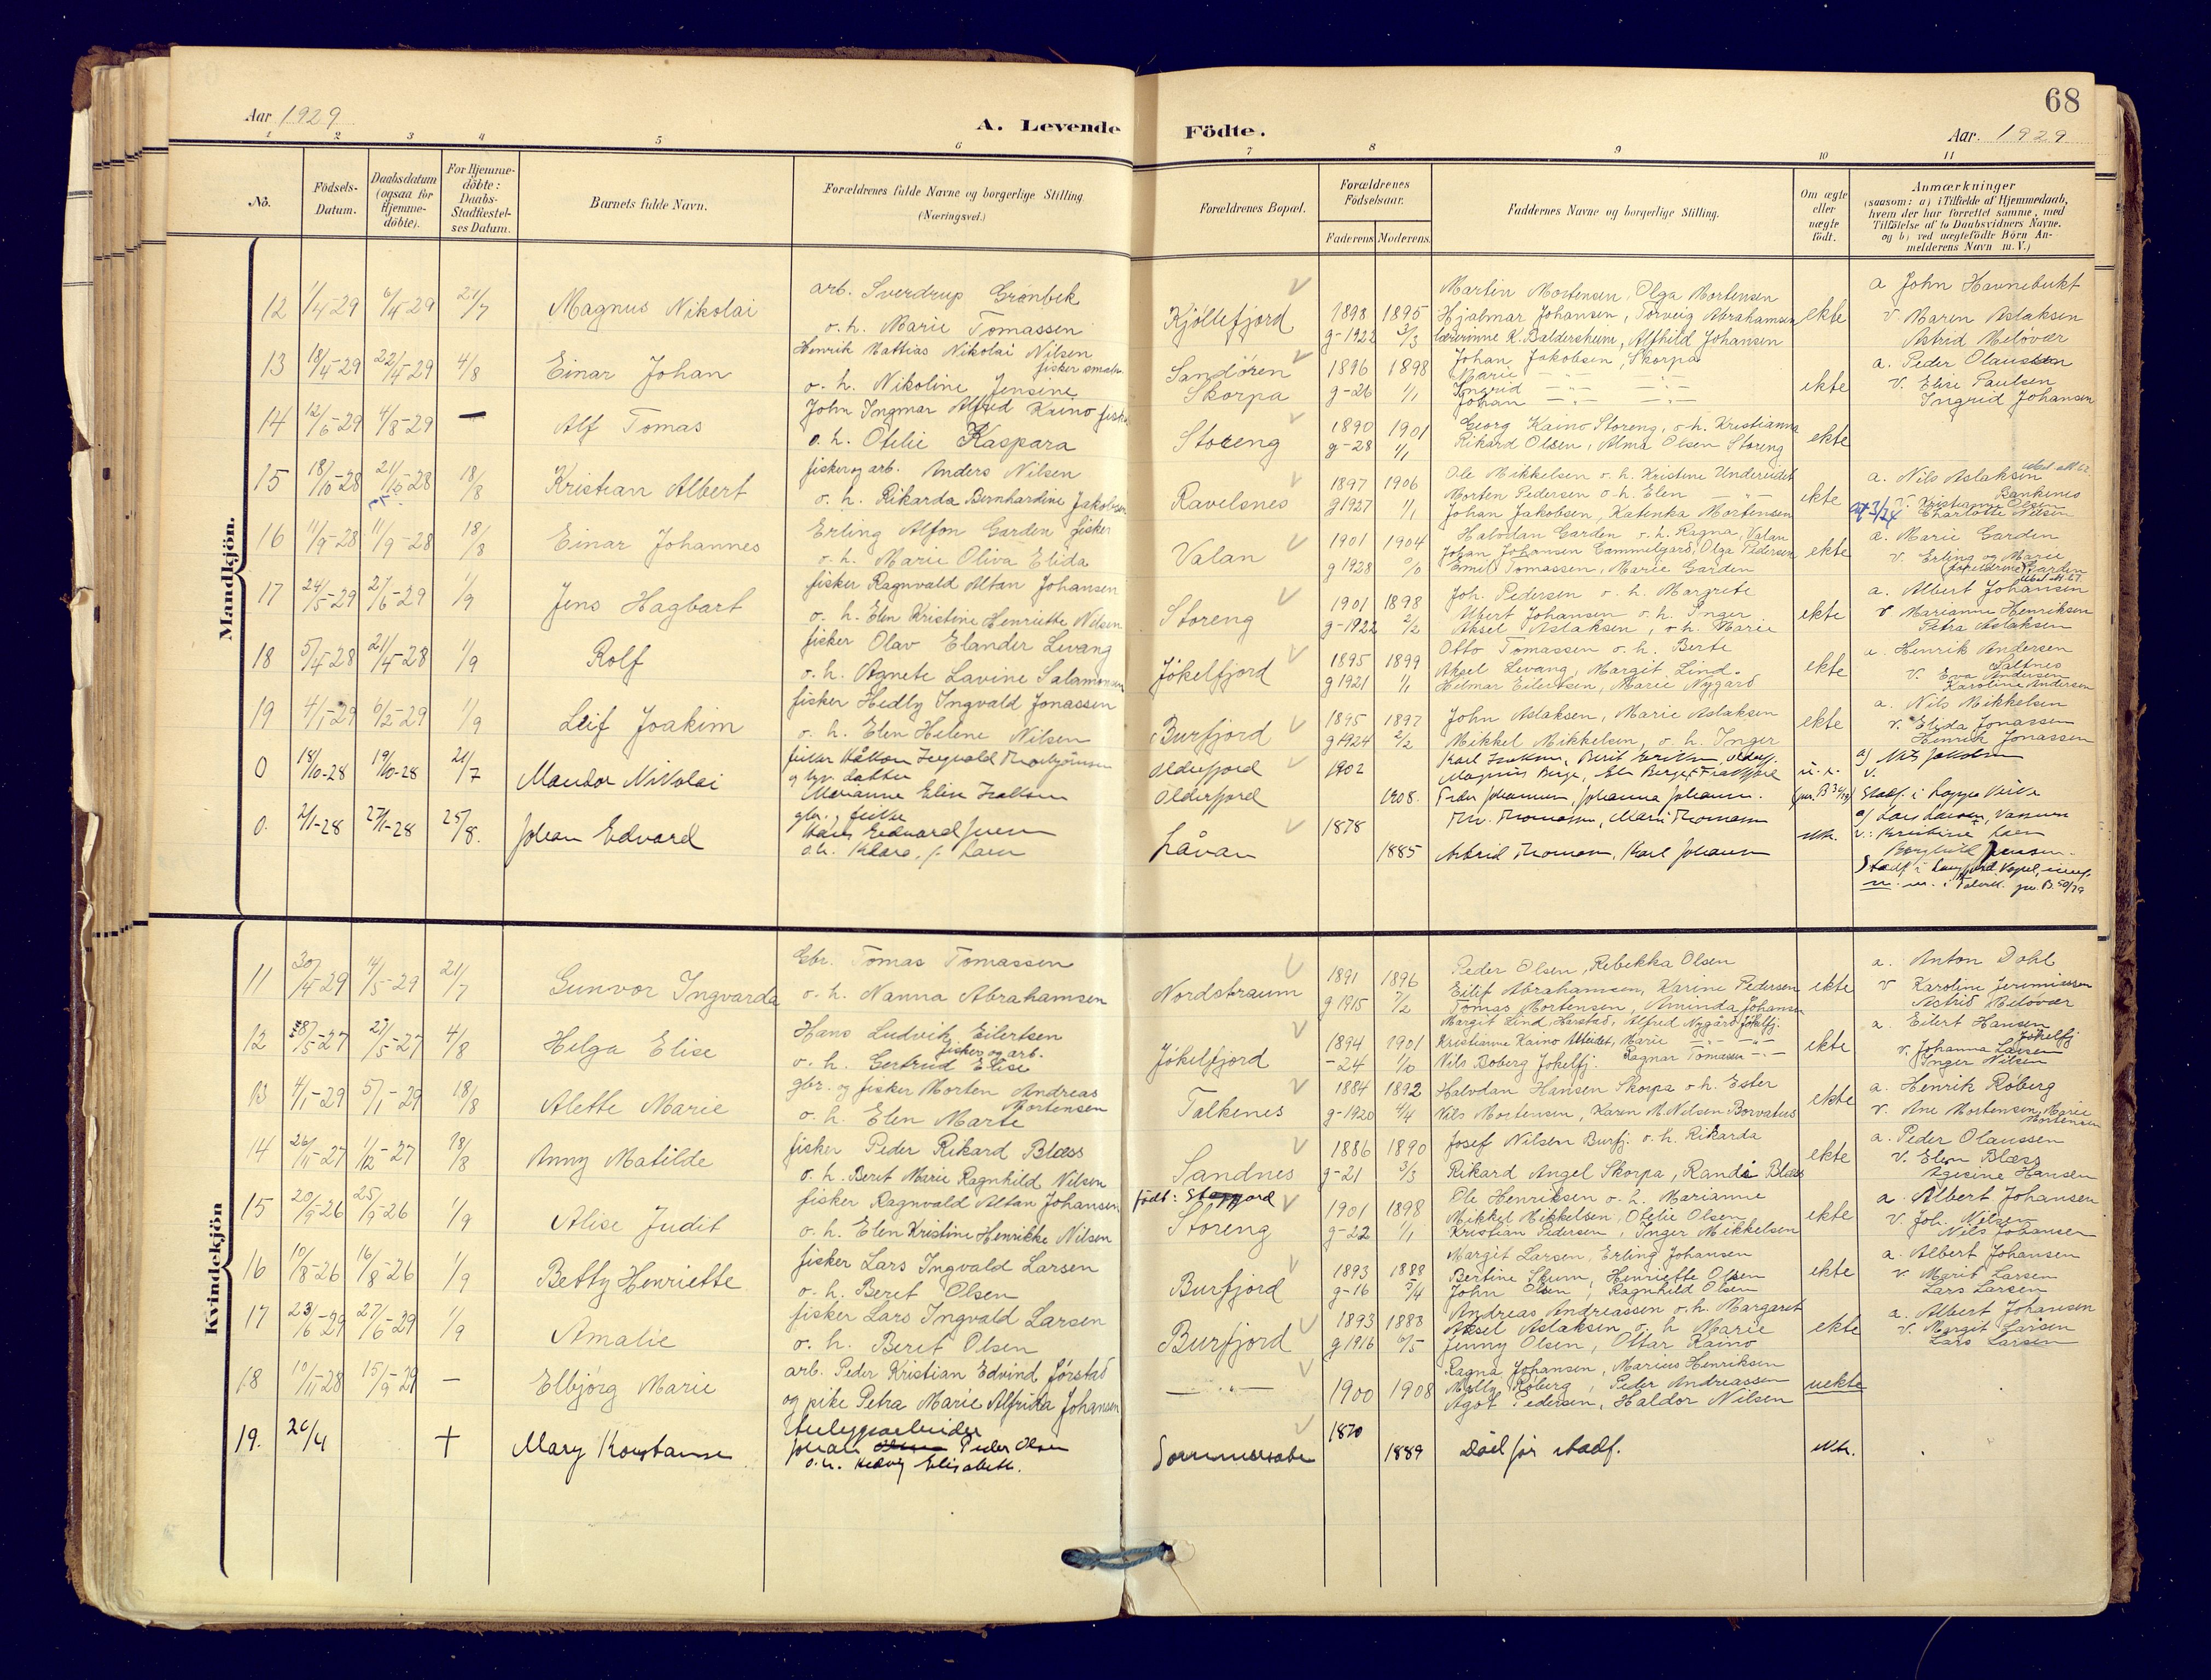 68
Aar 1929
A. Levende Födte.
Aar. 1929
1 2 3 4 5 6 7 8 9 10 11
No.
Födsels-Datum.
Daabsdatum (ogsaa for Hjemme-döbte).
For Hjemme-döbte: Daabs-Stadfæstel-ses Datum.
Barnets fulde Navn.
Forældrenes fulde Navne og borgerlige Stilling (Næringsvei.)
Forældrenes Bopæl.
Forældrenes Födselsaar.
Faderens Moderens
Faddernes Navne og borgerlige Stilling.
Om ægte eller uægte födt.
Anmærkninger
(saasom: a) i Tilfælde af Hjemmedaab,
hvem der har forrettet samme, med
Tilföielse af to Daabsvidners Navne,
og b) ved uægtefödte Börn An-
melderens Navn m. V.)
Mandkjön.
12 1/4-29 6/4-29 21/7 Magnus Nikolai
arb. Sverdrup Grønbek
o. h. Marie Tomassen
Kjöllefjord 1898 1895
g-1922 3/3
Martin Mortensen, Olga Mortensen
Hjalmar Johansen, Torveig Abrahamsen
lærerinne K. Baldersheim, Alfhild Johansen
ekte
a John Havnebukt
v Maren Aslaksen
Astrid Meløvær
13 18/4-29 22/4-29 4/8 Einar Johan
Henrik Mattias Nikolai Nilsen
fisker
o. h. Nikoline Jensine
Sandøren
Skorpa
1896 1898
g-26 1/1
Johan Jakobsen, Skorpa
Marie -"- -"-
Ingrid -"- -"-
Johan -"- -"-
ekte
a. Peder Olaussen
v. Elise Paulsen
Ingrid Johansen
14 12/6-29 4/8-29 — Alf Tomas
John Ingmar Alfred Kaino fisker
o. h. Otelie Kaspara
Storeng
1890 1901
g-28 1/1
Georg Kaino Storeng, o. h. Kristianna
Rikard Olsen, Alma Olsen Storeng
ekte
15 18/10-28 21/10-28 18/8 Kristian Albert
fisker og arb. Anders Nilsen
o. h. Rikarda Bernhardine Jakobsen
Ravelsnes
1897 1906
g1927 1/1
Ole Mikkelsen o. h. Kristine Undereidet
Morten Pedersen o. h. Elen -"-
Johan Jakobsen, Katinka Mortensen
ekte
a. Nils Aslaksen
v. Kristianne Olsen
Charlotte Nilsen
16 11/9-28 11/9-28 18/8 Einar Johannes
Erling Alfon Garden fisker
o. h. Marie Oliva Elida
Valan
1901 1904
g 1928
Halvdan Garden o. h. Ragna, Valan
Johan Johansen Gammelgard, Olga Pedersen
Emil Tomassen, Marie Garden
ekte
a. Marie Garden
v. Erling og Marie
Garden
17 24/5-29 2/6-29 1/9 Jens Hagbart
fisker Ragnvald Altan Johansen
o. h. Elen Kristine Henriette Nilsen
Storeng
1901 1898
g-1922 2/2
Joh. Pedersen o. h. Margrete
Albert Johansen o. h. Inger
Aksel Aslaksen, o. h. Marie
ekte
a. Albert Johansen
v Marianne Henriksen
Petra Aslaksen
18 5/4-28 21/4-28 1/9 Rolf
fisker Olav Elander Levang
o. h. Agnete Lavine Salamonsen
Jøkelfjord
1895 1899
g 1921 1/1
Otto Tomassen o. h. Berte
Aksel Levang, Margit Lind.
Hilmar Eilertsen, Marie Nygård
ekte
a. Henrik Andersen
Saltnes
v. Eva Andersen
Karoline Andersen
19 4/1-29 6/2-29 1/9 Leif Joakim
fisker Hedly Ingvald Jonassen
o. h. Elen Helene Nilsen
Burfjord
1895 1897
g1924 2/2
John Aslaksen, Marie Aslaksen
Mikkel Mikkelsen, o. h. Inger
ekte
a. Nils Mikkelsen
v. Elida Jonassen
Henrik Jonassen
0 18/10-28 19/10-28 21/7 Mandor Nikolai
fisker Håkon Ingvald
Marianne Elise Isaksen
Olderfjord
Olderfjord
1902
1908.
Peder Johannesen, Johanna Johansen.
u. e.
a) Nils Jakobsen
v.
0. 2/1-28 27/1-28 25/8. Johan Edvard
gbr., fisker
Hans Eedvard Jensen
o. h. Klara, f. Larsen
Låvan
1878
1885
Th. Thomassen, Marie Thomassen
Astrid Thomassen, Karl Johansen
ekte.
a) Lars Larsen,
v.: Kristine Larsen
Borghild Jensen.
Kvindekjön
11 30/4-29 14/5-29 21/7 Gunvor Ingvarda
Gbr. Tomas Tomassen
o. h. Nanna Abrahamsen
Nordstraum
1891 1896
g 1915 7/2
Peder Olsen, Rebekka Olsen
Eilif Abrahamsen, Karine Pedersen
Tomas Mortensen, Aminda Johansen
ekte
a. Anton Dahl
v Karoline Jerimiassen
Astrid Meløvær
12 8/5-27 27/5-27 4/8 Helga Elise
Hans Ludvik Eilertsen
fisker og arb.
o. h. Gertrud Elise
Jøkelfjord
1894 1901
-24 1/0
Margit Lind, Harstad, Alfred Nygård Jökelfj.
Kristianne Kaino Alteidet, Marie -"- -"-
Nils Boberg Jökelfj. Ragnar Tomassen -"-
ekte
a. Eilert Hansen
Jøkelfj
v. Johanna Larsen
Inger Nilsen
13 4/1-29 5/1-29 18/8 Alette Marie
gbr. og fisker Morten Andreas
Mortensen
o. h. Elen Marte
Talkenes
1884 1892
g-1920 4/4
Halvdan Hansen Skorpa o. h. Ester
Nils Mortensen, Karen M. Nilsen Borvatus
ekte
a. Henrik Röberg
v. Ane Mortensen, Marie
Mortensen
14 26/11-27 1/12-27 18/8 Anny Matilde
fisker Peder Rikard Blæss
o. h. Berit Marie Ragnhild Nilsen
Sandnes
1886 1890
g-21 3/3
Josef Nilsen Burfj. o. h. Rikarda
Rikard Angel Skorpa, Randi Blæss
ekte
a. Peder Olaussen
v. Elen Blæss
Agisine Hansen
15 20/9-26 25/9-26 1/9 Alise Judit
fisker Ragnvald Altan Johansen
o. h. Elen Kristine Henrikke Nilsen
født:
Storeng
1901 1898
g-22 1/1
Ole Henriksen o. h. Marianne
Mikkel Mikkelsen, Otelie Olsen
Kristian Pedersen, Inger Mikkelsen
ekte
a. Albert Johansen
v. Joh. Nilsen
Nils Johansen
16 10/8-26 16/8-26 1/9 Betty Henriette
fisker Lars Ingvald Larsen
o. h. Beret Olsen
Burfjord
1893 1888
g-16 5/4
Margit Larsen, Erling Johansen
Bertine Skum, Henriette Olsen
John Olsen, Ragnhild Olsen
ekte
a. Albert Johansen
v. Marit Larsen
Lars Larsen
17 23/6-29 27/6-29 1/9 Amalie
fisker Lars Ingvald Larsen
o. h. Beret Olsen
Burfjord
1893 1888
g 1916 6/5
Andreas Andreassen o. h. Margaret
Aksel Aslaksen o. h Marie
Jenny Olsen, Ottar Kaino
ekte
a. Albert Johansen
v. Margit Larsen
Lars Larsen
18 10/11-28 15/9-29 — Elbjörg Marie
arb. Peder Kristian Edvind Jørstad
og pike Petra Marie Alfrida Johansen
—"—
1900 1908
Ragna Johansen, Marius Henriksen
Molly Röberg, Peder Andreassen
Agot Pedersen, Haldor Nilsen
uekte
19. 26/4 + Mary Konstanse
Anleggsarbeider
Johan Peder Olsen
o. h. Hedvig Elisabeth.
1870
1889
Död før stadf.
ekte.